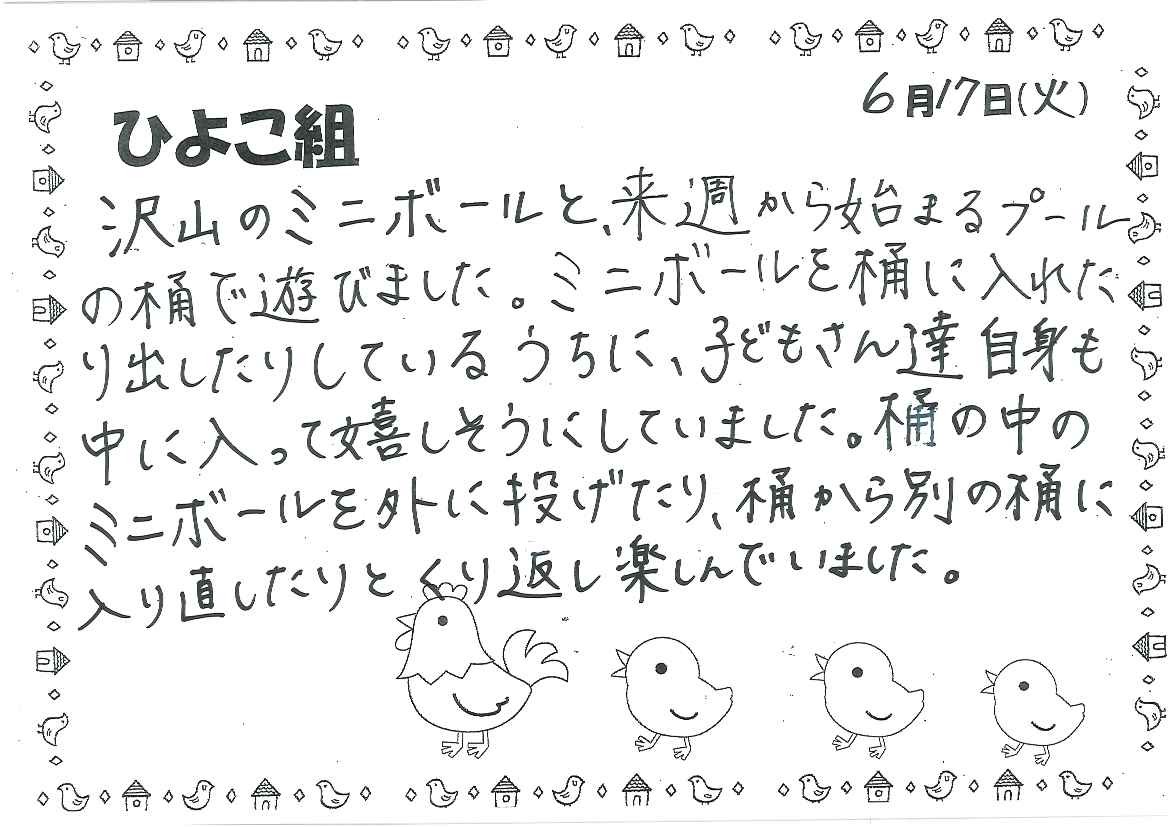 6月17日(火)
ひよこ組
沢山のミニボールと、来週から始まるプール
の桶で遊びました。ミニボールを桶に入れた
り出したりしているうちに、子どもさん達自身も
中に入って嬉しそうにしていました。桶の中の
ミニボールを外に投げたり、桶から別の桶に
入り直したりとくり返し楽しんでいました。